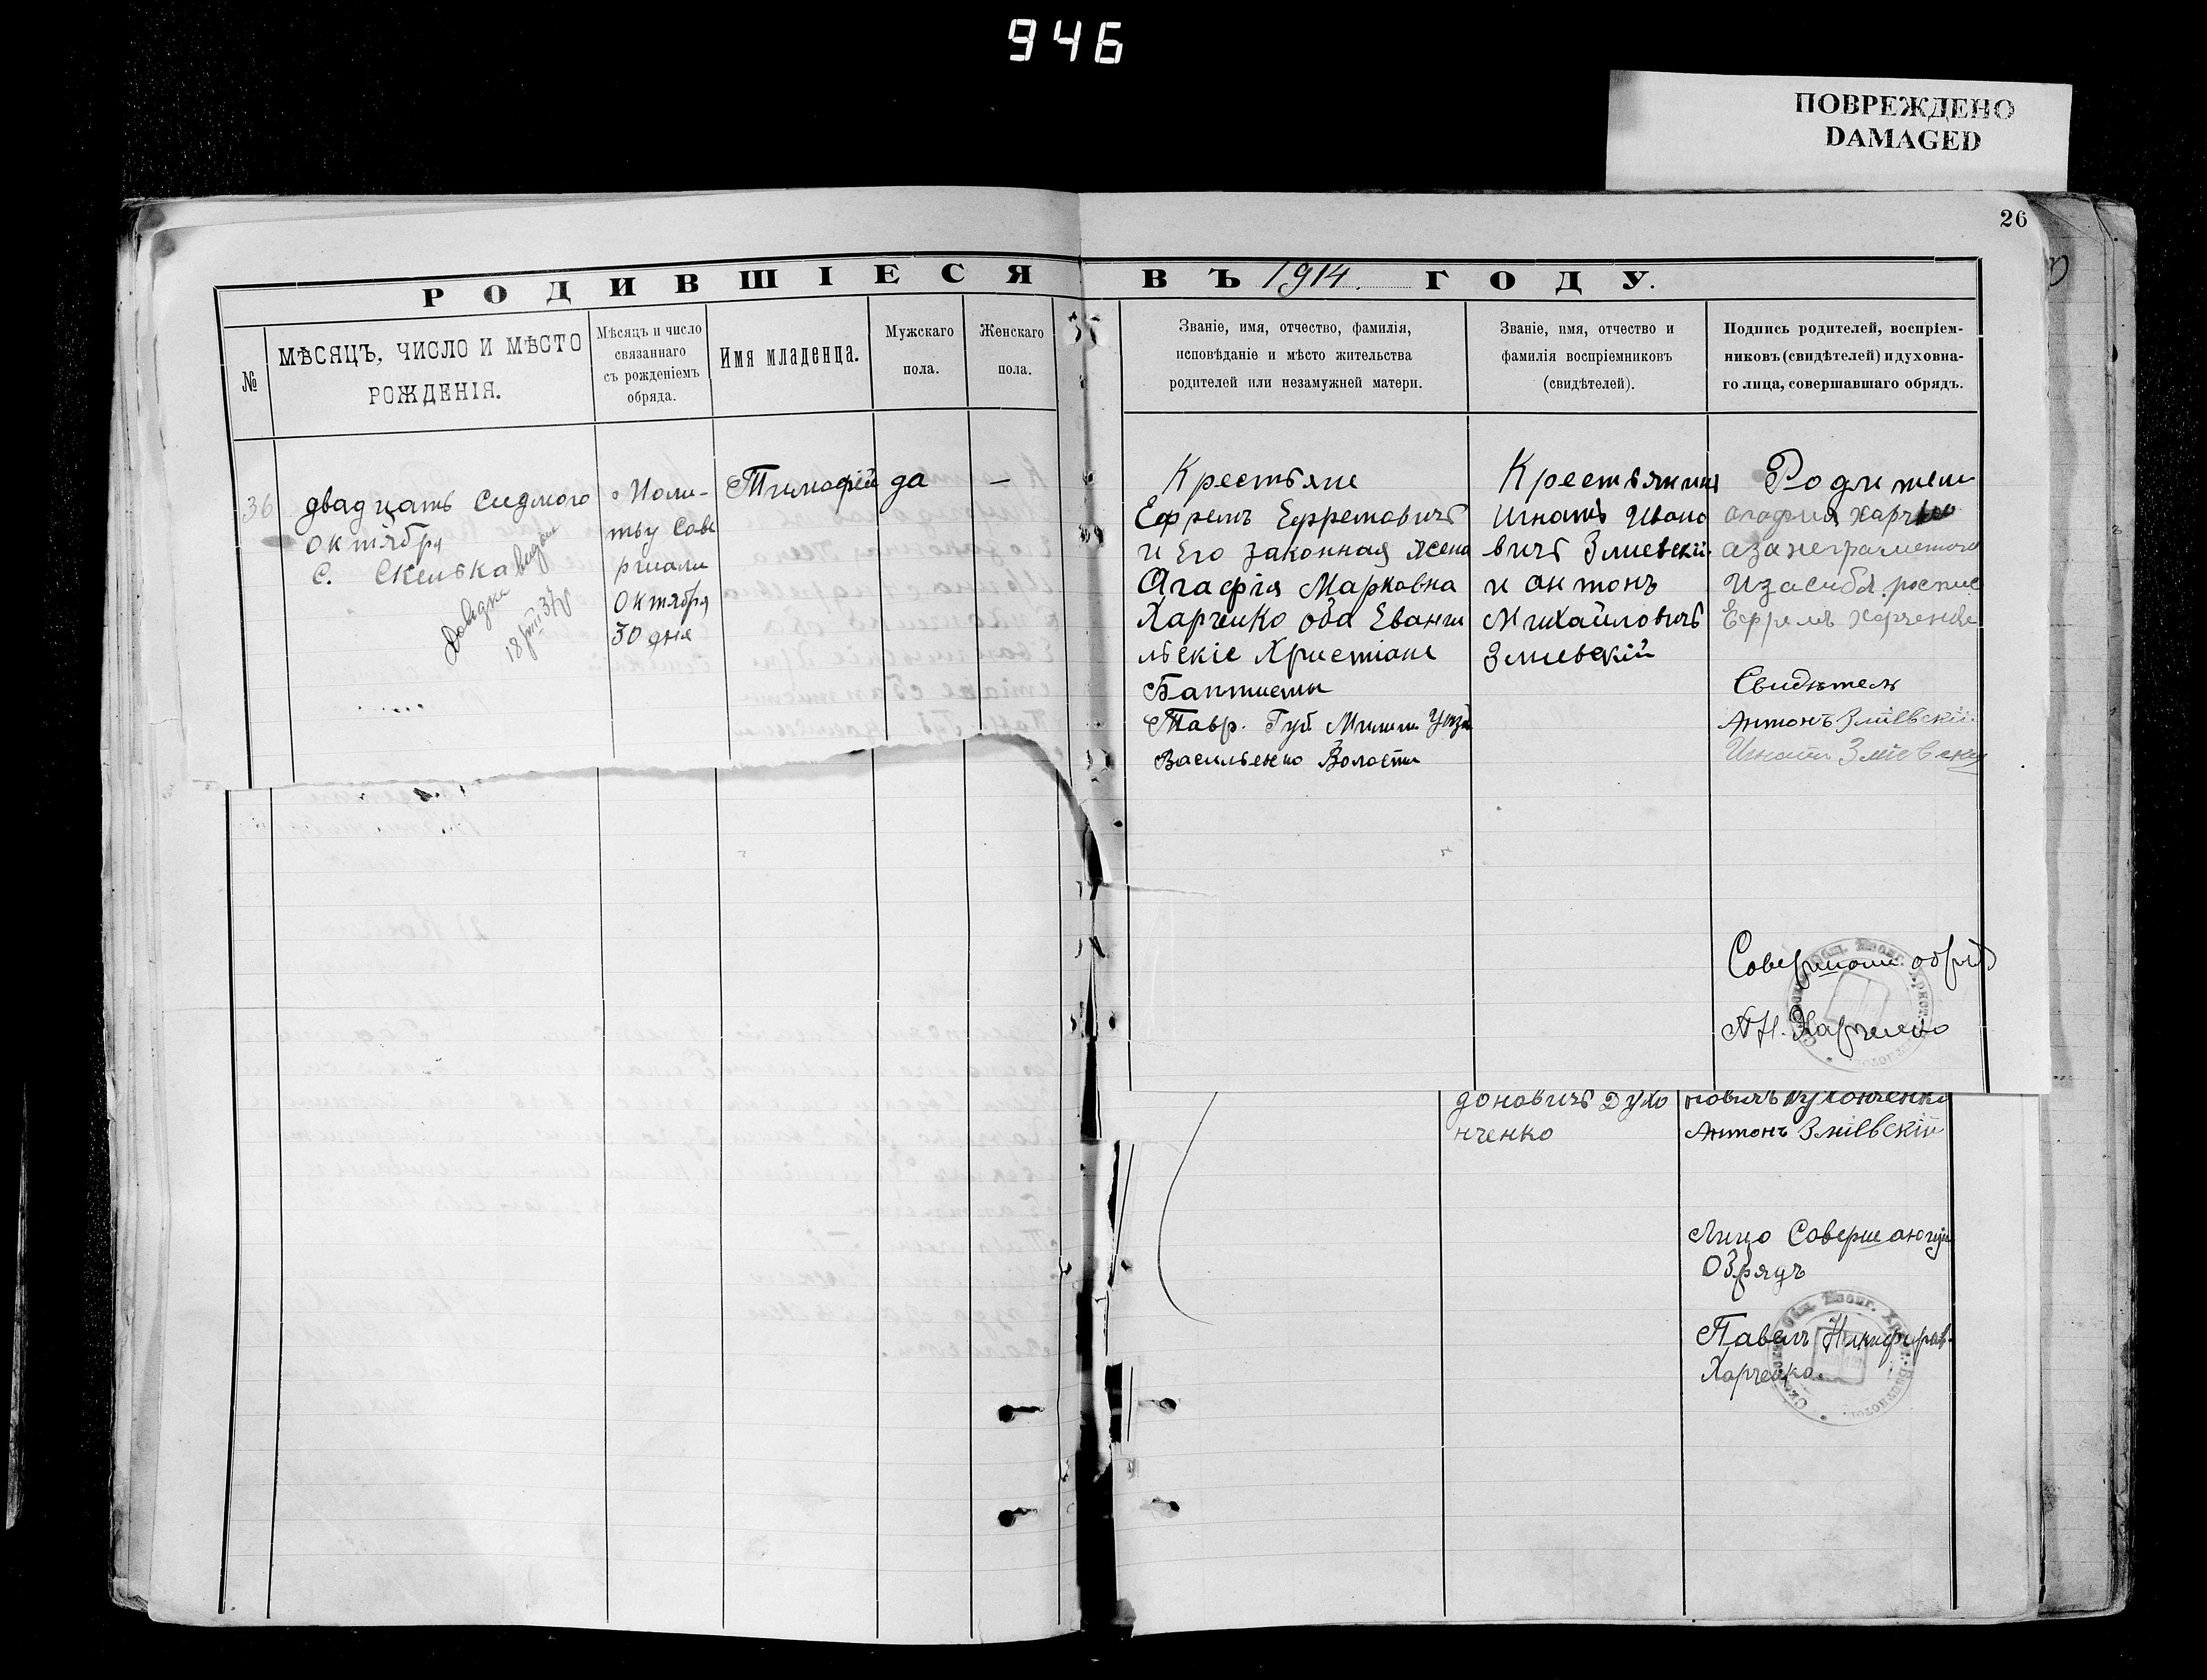 946
ПОВРЕЖДЕНО
DAMAGED
26
РОДИВШІЕСЯ ВЪ 1914. ГОДУ.
№
МѢСЯЦЪ, ЧИСЛО И МѢСТО
РОЖДЕНІЯ.
Мѣсяцъ и число
связаннаго
съ рожденіемъ
обряда.
Имя младенца.
Мужскаго
пола.
Женскаго
пола.
Званіе, имя, отчество, фамилія,
исповѣданіе и мѣсто жительства
родителей или незамужней матери.
Званіе, имя, отчество и
фамилія воспріемниковъ
(свидѣтелей).
Подпись родителей, воспріем-
никовъ (свидѣтелей) и духовна-
го лица, совершавшаго обрядъ.
36
двадцать Седмого
октября
С. Скелька
Довідка видана
18/VIII 37
Моли-
тву Сове
ршали
Октября
30 дня
Тимофѣй
да
—
Крестьяне
Ефремъ Ефремовичъ
и Его законная Жена
Агафія Марковна
Харченко оба Еванги
льскіе Христіане
Баптисты
Тавр. Губ. Мелит Уѣзд
Васильевко Волости
Крестьянинъ
Игнатъ Ивано
вичъ Змиевскій
и антонъ
Михайловичъ
Змиевскій
Родители
агафия харченко
а за неграмотого
Изасибя роспис
Ефремъ Харченко
Свидѣтель
Антонъ Зміевскій
Игнатъ Зміевский
Совершали обряд
П Н. Харченко
доновичъ Духо
нченко
новичъ Духонченко
Антонъ Зміевскій
Лицо Совершающи
Обрядъ
Павелъ Никифоров.
Харченко.